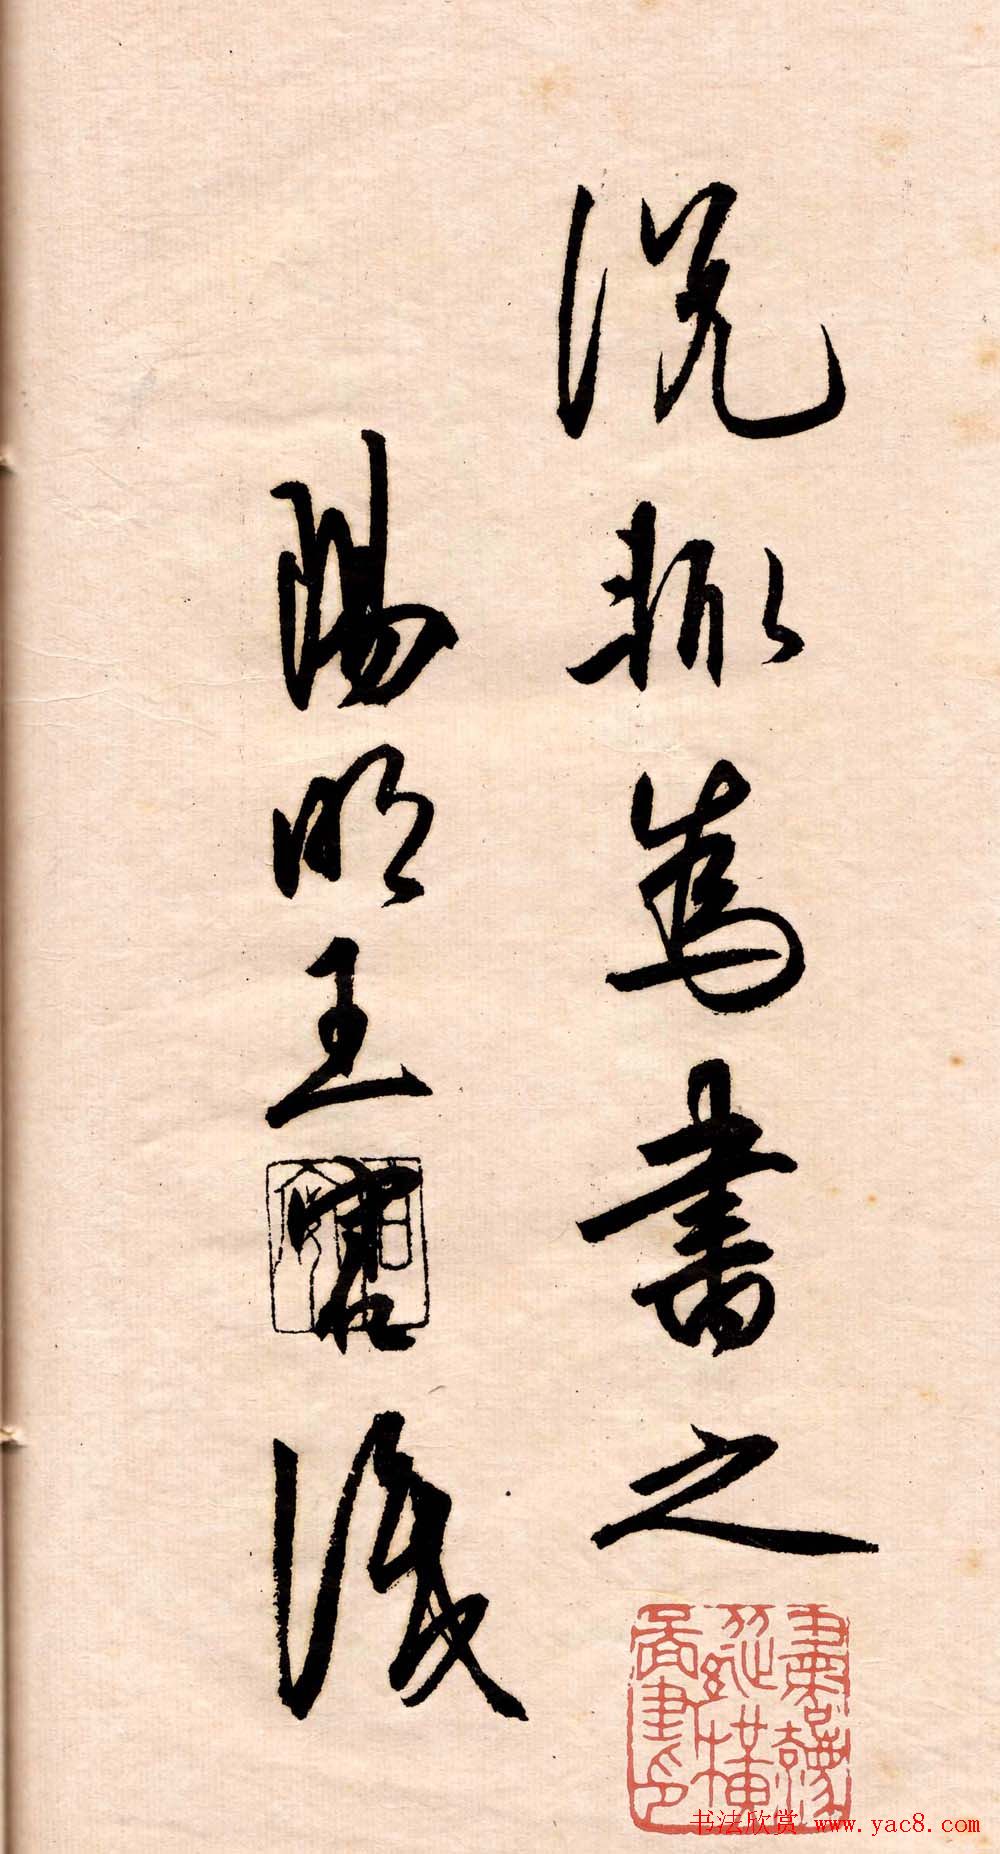 說輒為書之
陽明王守仁識
书法欣赏 www.yac8.com